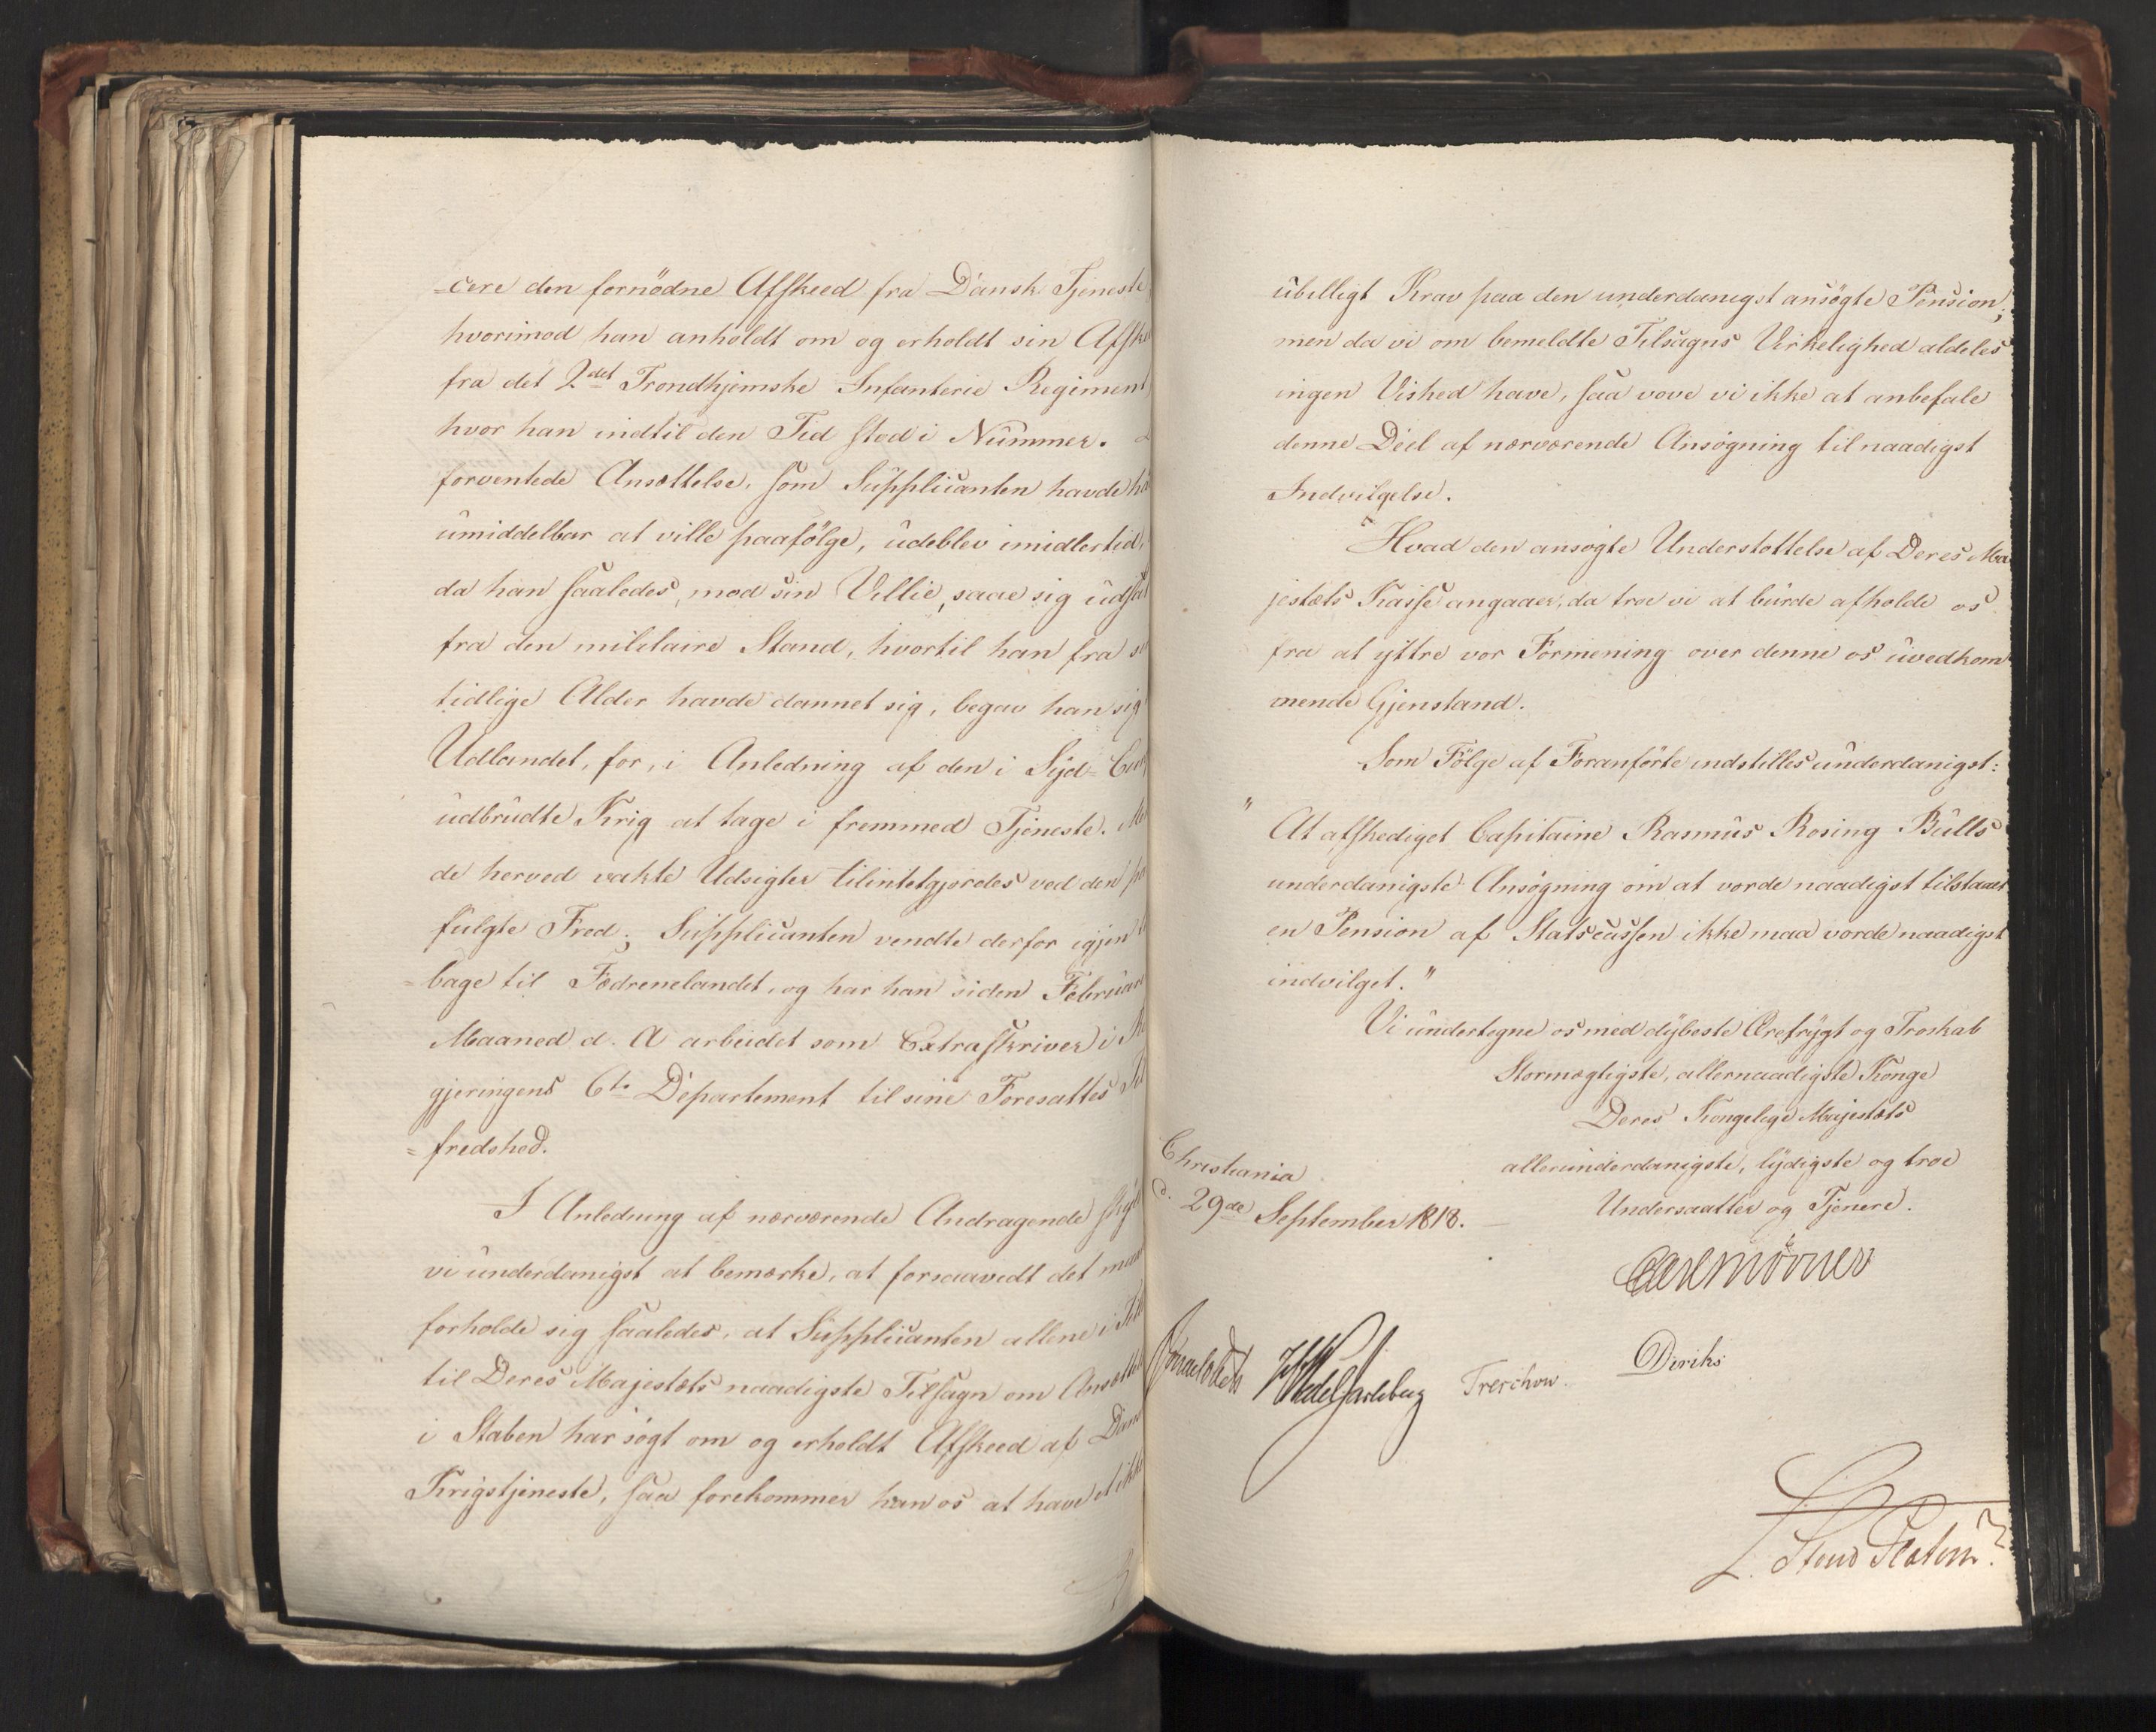 =cere den fornødne Afskeed fra Dansk Tjeneste
hvorimod han anholdt om og erholdt sin Afske
fra det 2det Trondhjemske Infanterie Regiment
hvor han indtil den Tid stod i Nummer.
forventede Ansættelse, som Supplicanten havde
umiddelbar at ville paafølge, udeblev imidlertid,
da han saaledes, mod sin Villie, saae sig udsat
fra den militaire Stand, hvortil han fra
tidlige Alder havde dannet sig, begav han sig
Udlandet, for, i Anledning af den i Syd=
udbrudte Krig at tage i fremmed Tjeneste.
de herved vakte Udsigter tilintetgjordes ved den
fulgte Fred; Supplicanten vendte derfor igjen
=bage til Fædrenelandet, og har han siden Februar
Maaned d. A arbeidet som Extraskriver i
gjeringens 6te Departement til sine Foresattes
=fredshed.
I Anledning af nærværende Andragende
vi underdanigst at bemærke, at forsaavidt det
forholde sig saaledes, at Supplicanten allene i
til Deres Majestæts naadigste Tilsagn om
i Staben har søgt om og erholdt Afskeed af
Krigstjeneste, saa forekommer han os at have et ikke
ubilligt Krav paa den underdanigst ansøgte Pension;
men da vi om bemeldte Tilsagns Virkelighed aldeles
ingen Vished have, saa vove vi ikke at anbefale
denne Deel af nærværende Ansøgning til naadigst
Indvilgelse.
Hvad den ansøgte Understøttelse af Deres Ma
jestæts Kasse angaaer, da troe vi at burde afholde os
fra at yttre vor Formening over denne os uvedkom
mende Gjenstand.
Som Følge af Foranførte indstilles underdanigst:
"At afskediget Capitaine Rasmus Rosing Bulls
underdanigste Ansøgning om at vorde naadigst tilstaaet
en Pension af Statscassen ikke maa vorde naadigst
indvilget."
Vi undertegne os med dybeste Ærefrygt og Troskab
Stormægtigste, allernaadigste Konge
Deres Kongelige Majestæts
allerunderdanigste, lydigste og troe
Undersaatter og Tjenere.
Christiania
d. 29de September 1818.
Carl Mörner
Sommelskett
Treschow. Diriks